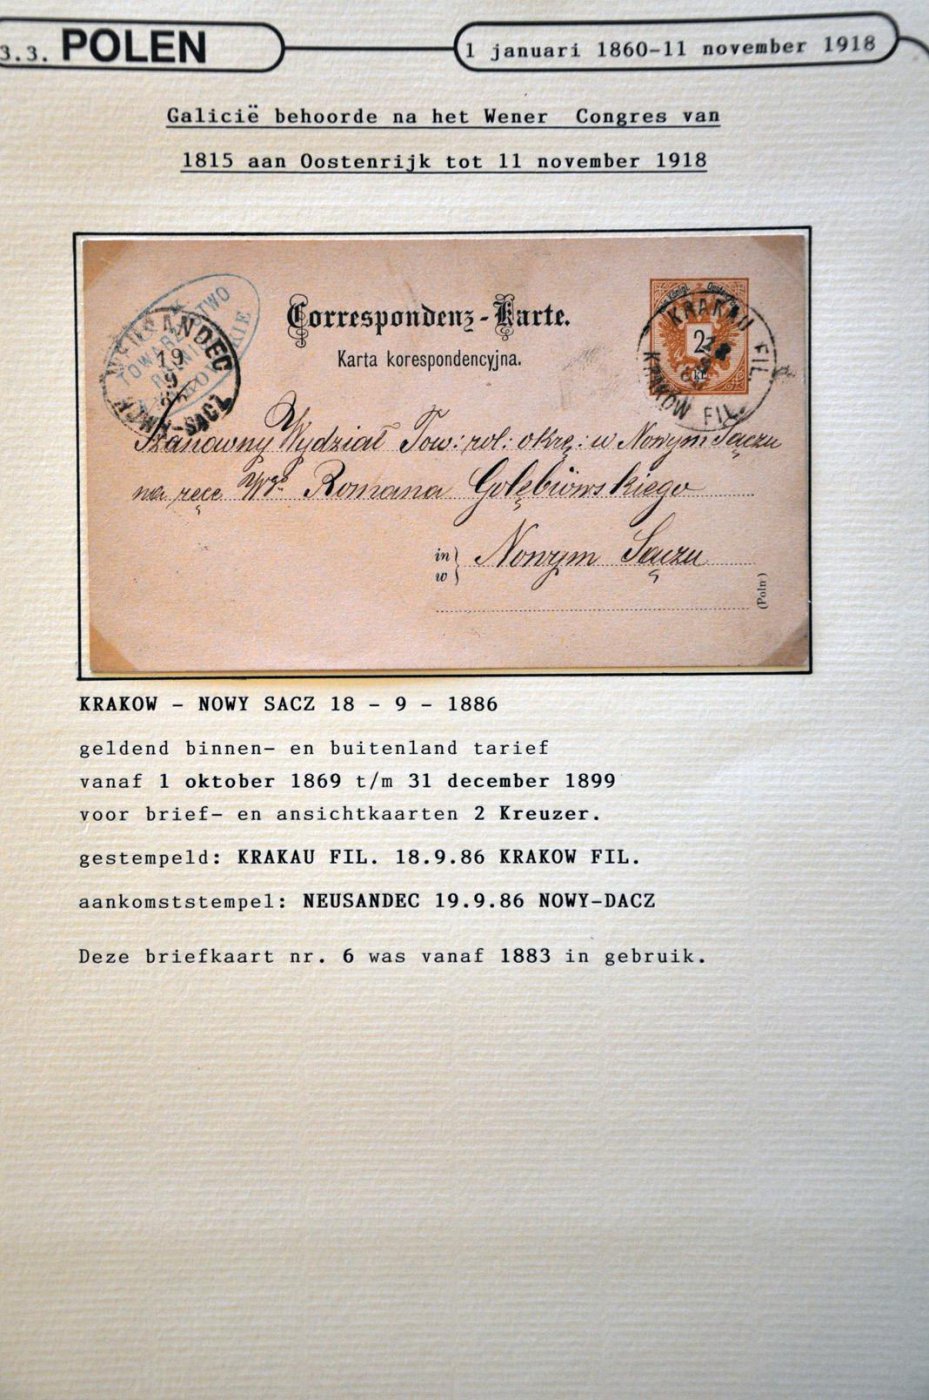 3.3. POLEN
1 januari 1860-11 november 1918
Galicië behoorde na het Wener Congres van
1815 aan Oostenrijk tot 11 november 1918
TOWARZYSTWO
NEUSANDEC
19
9
NOWY-SĄCZ
Correspondenz-Karte.
Karta korespondencyjna.
KRAKAU FIL.
2
KRAKÓW FIL.
Szanowny Wydział Tow: rol: okrę: w Nowym Sączu
na ręce Wgo Romana Gołębiowskiego
in
w
Nowym Sączu
(Poln.)
KRAKOW - NOWY SACZ 18 - 9 - 1886
geldend binnen- en buitenland tarief
vanaf 1 oktober 1869 t/m 31 december 1899
voor brief- en ansichtkaarten 2 Kreuzer.
gestempeld: KRAKAU FIL. 18.9.86 KRAKOW FIL.
aankomststempel: NEUSANDEC 19.9.86 NOWY-DACZ
Deze briefkaart nr. 6 was vanaf 1883 in gebruik.